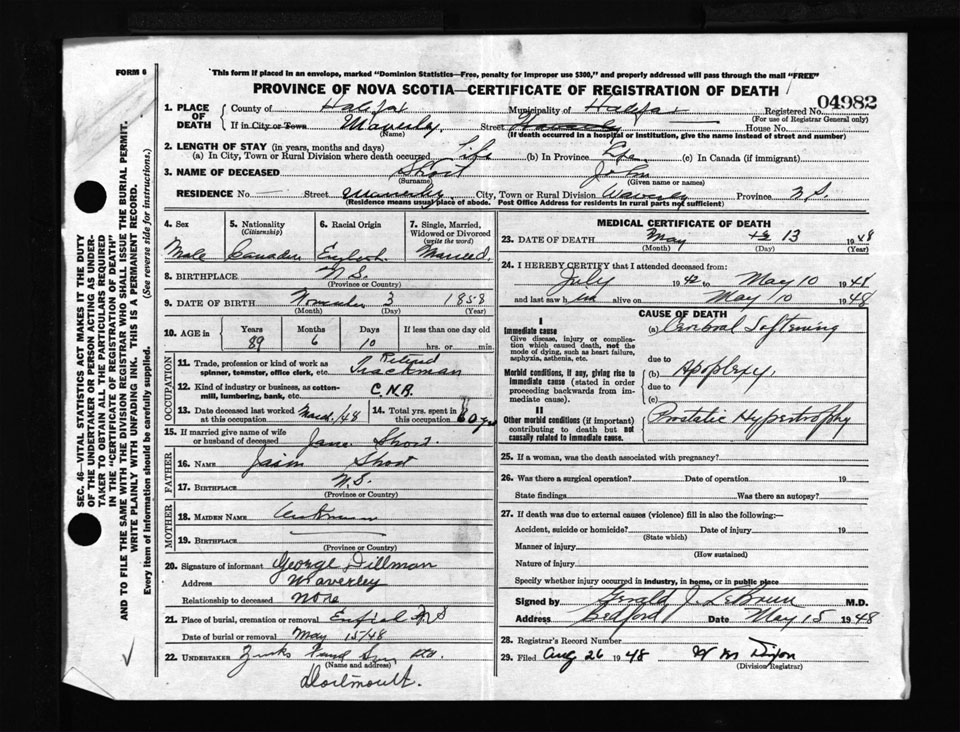 FORM 6
This form if placed in an envelope, marked "Dominion Statistics—Free, penalty for improper use $300," and properly addressed will pass through the mail "FREE"
PROVINCE OF NOVA SCOTIA—CERTIFICATE OF REGISTRATION OF DEATH
04982
1. PLACE OF DEATH
County of Halifax Municipality of Halifax Registered No.
(For use of Registrar General only)
If in City or Town Waverly, Street Waverly House No.
(Name) (If death occurred in a hospital or institution, give the name instead of street and number)
2. LENGTH OF STAY (in years, months and days)
(a) In City, Town or Rural Division where death occurred Life (b) In Province Life (c) In Canada (if immigrant)
3. NAME OF DECEASED Short John
(Surname) (Given name or names)
RESIDENCE No. — Street Waverly City, Town or Rural Division Waverly Province N.S.
(Residence means usual place of abode. Post Office Address for residents in rural parts not sufficient)
4. Sex Male
5. Nationality (Citizenship) Canadian
6. Racial Origin English
7. Single, Married, Widowed or Divorced (write the word) Married
8. BIRTHPLACE N.S.
(Province or Country)
9. DATE OF BIRTH November 3 1858
(Month) (Day) (Year)
10. AGE in Years Months Days If less than one day old
89 6 10 hrs. or min.
OCCUPATION
11. Trade, profession or kind of work as spinner, teamster, office clerk, etc. Retired Trackman
12. Kind of industry or business, as cotton-mill, lumbering, bank, etc. C.N.R.
13. Date deceased last worked at this occupation March/48
14. Total yrs. spent in this occupation 60 yrs
15. If married give name of wife or husband of deceased Jane Short
FATHER
16. NAME Short
17. BIRTHPLACE N.S.
(Province or Country)
MOTHER
18. MAIDEN NAME Unknown
19. BIRTHPLACE
(Province or Country)
20. Signature of informant George Dillman
Address Waverley
Relationship to deceased None
21. Place of burial, cremation or removal Enfield N S
Date of burial or removal May 15/48
22. UNDERTAKER Zinks
(Name and address)
Dartmouth.
MEDICAL CERTIFICATE OF DEATH
23. DATE OF DEATH May 13 1948
(Month) (Day)
24. I HEREBY CERTIFY that I attended deceased from:
July 1942 to May 10 1948
and last saw him alive on May 10 1948
CAUSE OF DEATH
I
Immediate cause
Give disease, injury or complication which caused death, not the mode of dying, such as heart failure, asphyxia, asthenia, etc.
(a) Cerebral Softening
due to
Morbid conditions, if any, giving rise to immediate cause (stated in order proceeding backwards from immediate cause).
(b) Apoplexy,
due to
(c)
II
Other morbid conditions (if important) contributing to death but not causally related to immediate cause.
Prostatic Hypertrophy
25. If a woman, was the death associated with pregnancy?
26. Was there a surgical operation? Date of operation 19
State findings Was there an autopsy?
27. If death was due to external causes (violence) fill in also the following:—
Accident, suicide or homicide? Date of injury 19
(State which)
Manner of injury
(How sustained)
Nature of injury
Specify whether injury occurred in industry, in home, or in public place
Signed by Gerald J. LeBrun M.D.
Address Bedford Date May 15 1948
28. Registrar's Record Number
29. Filed Aug 26 1948 W M Dixon
(Division Registrar)
SEC. 46—VITAL STATISTICS ACT MAKES IT THE DUTY
OF THE UNDERTAKER OR PERSON ACTING AS UNDER-
TAKER TO OBTAIN ALL THE PARTICULARS REQUIRED
IN THE "CERTIFICATE OF REGISTRATION OF DEATH"
AND TO FILE THE SAME WITH THE DIVISION REGISTRAR WHO SHALL ISSUE THE BURIAL PERMIT.
WRITE PLAINLY WITH UNFADING INK. THIS IS A PERMANENT RECORD.
Every item of information should be carefully supplied. (See reverse side for instructions.)